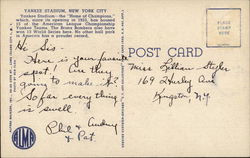 YANKEE STADIUM, NEW YORK CITY
Yankee Stadium - the "Home of Champions,"
which, since its opening in 1923, has housed
15 of the American League Championship
Yankee Teams. The Bronx Bombers also have
won 12 World Series here. No other ball park
in America has a prouder record.
POST CARD
Hi Sis -
Here is your favorite
spot! Are they
going to make it?
So far everything
is swell.
Phil & Audrey
& Pat
Miss Lillian
169
Kingston, N.Y.
ALMA